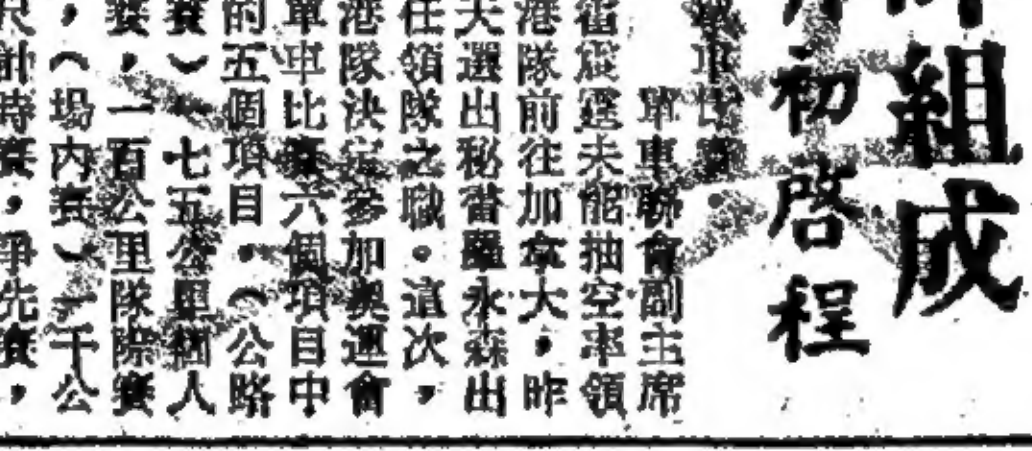 組成
初啓程
單車比賽。
單車聯會副主席
雷震霆未能抽空率領
港隊前往加拿大，昨
天選出秘書羅永森出
任領隊之職。這次，
港隊決定參加奧運會
單車比賽六個項目中
的五個項目，（公路
賽）一七五公里個人
賽，一百公里隊際賽
，（場内賽）一千公
尺計時賽，爭先賽，